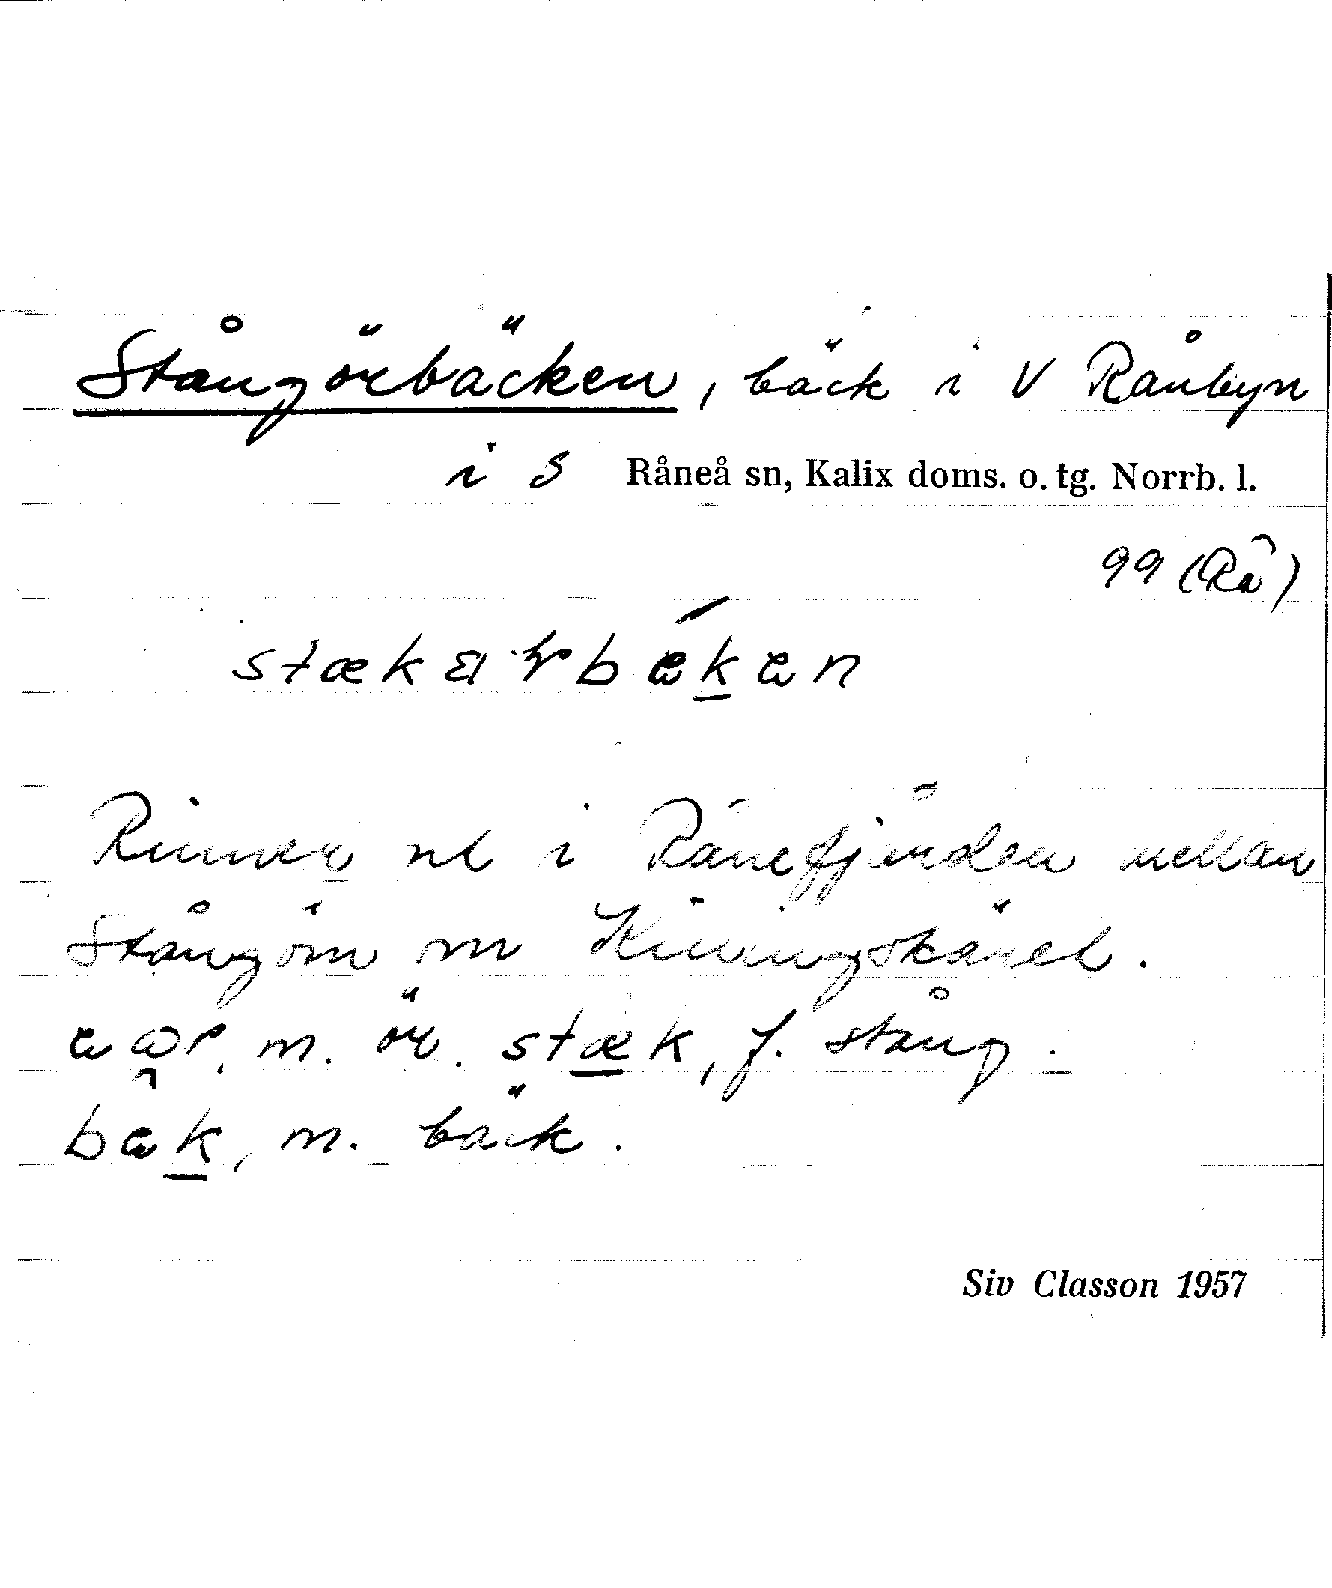 Stångörbäcken, bäck i V Rånbyn
i S Råneå sn, Kalix doms. o. tg. Norrb. l.
99 (Rå)
Rinner ut i Rånefjärden mellan
Stångön m
m. ör. stæk, f. stång.
bæk, m. bäck.
Siv Classon 1957